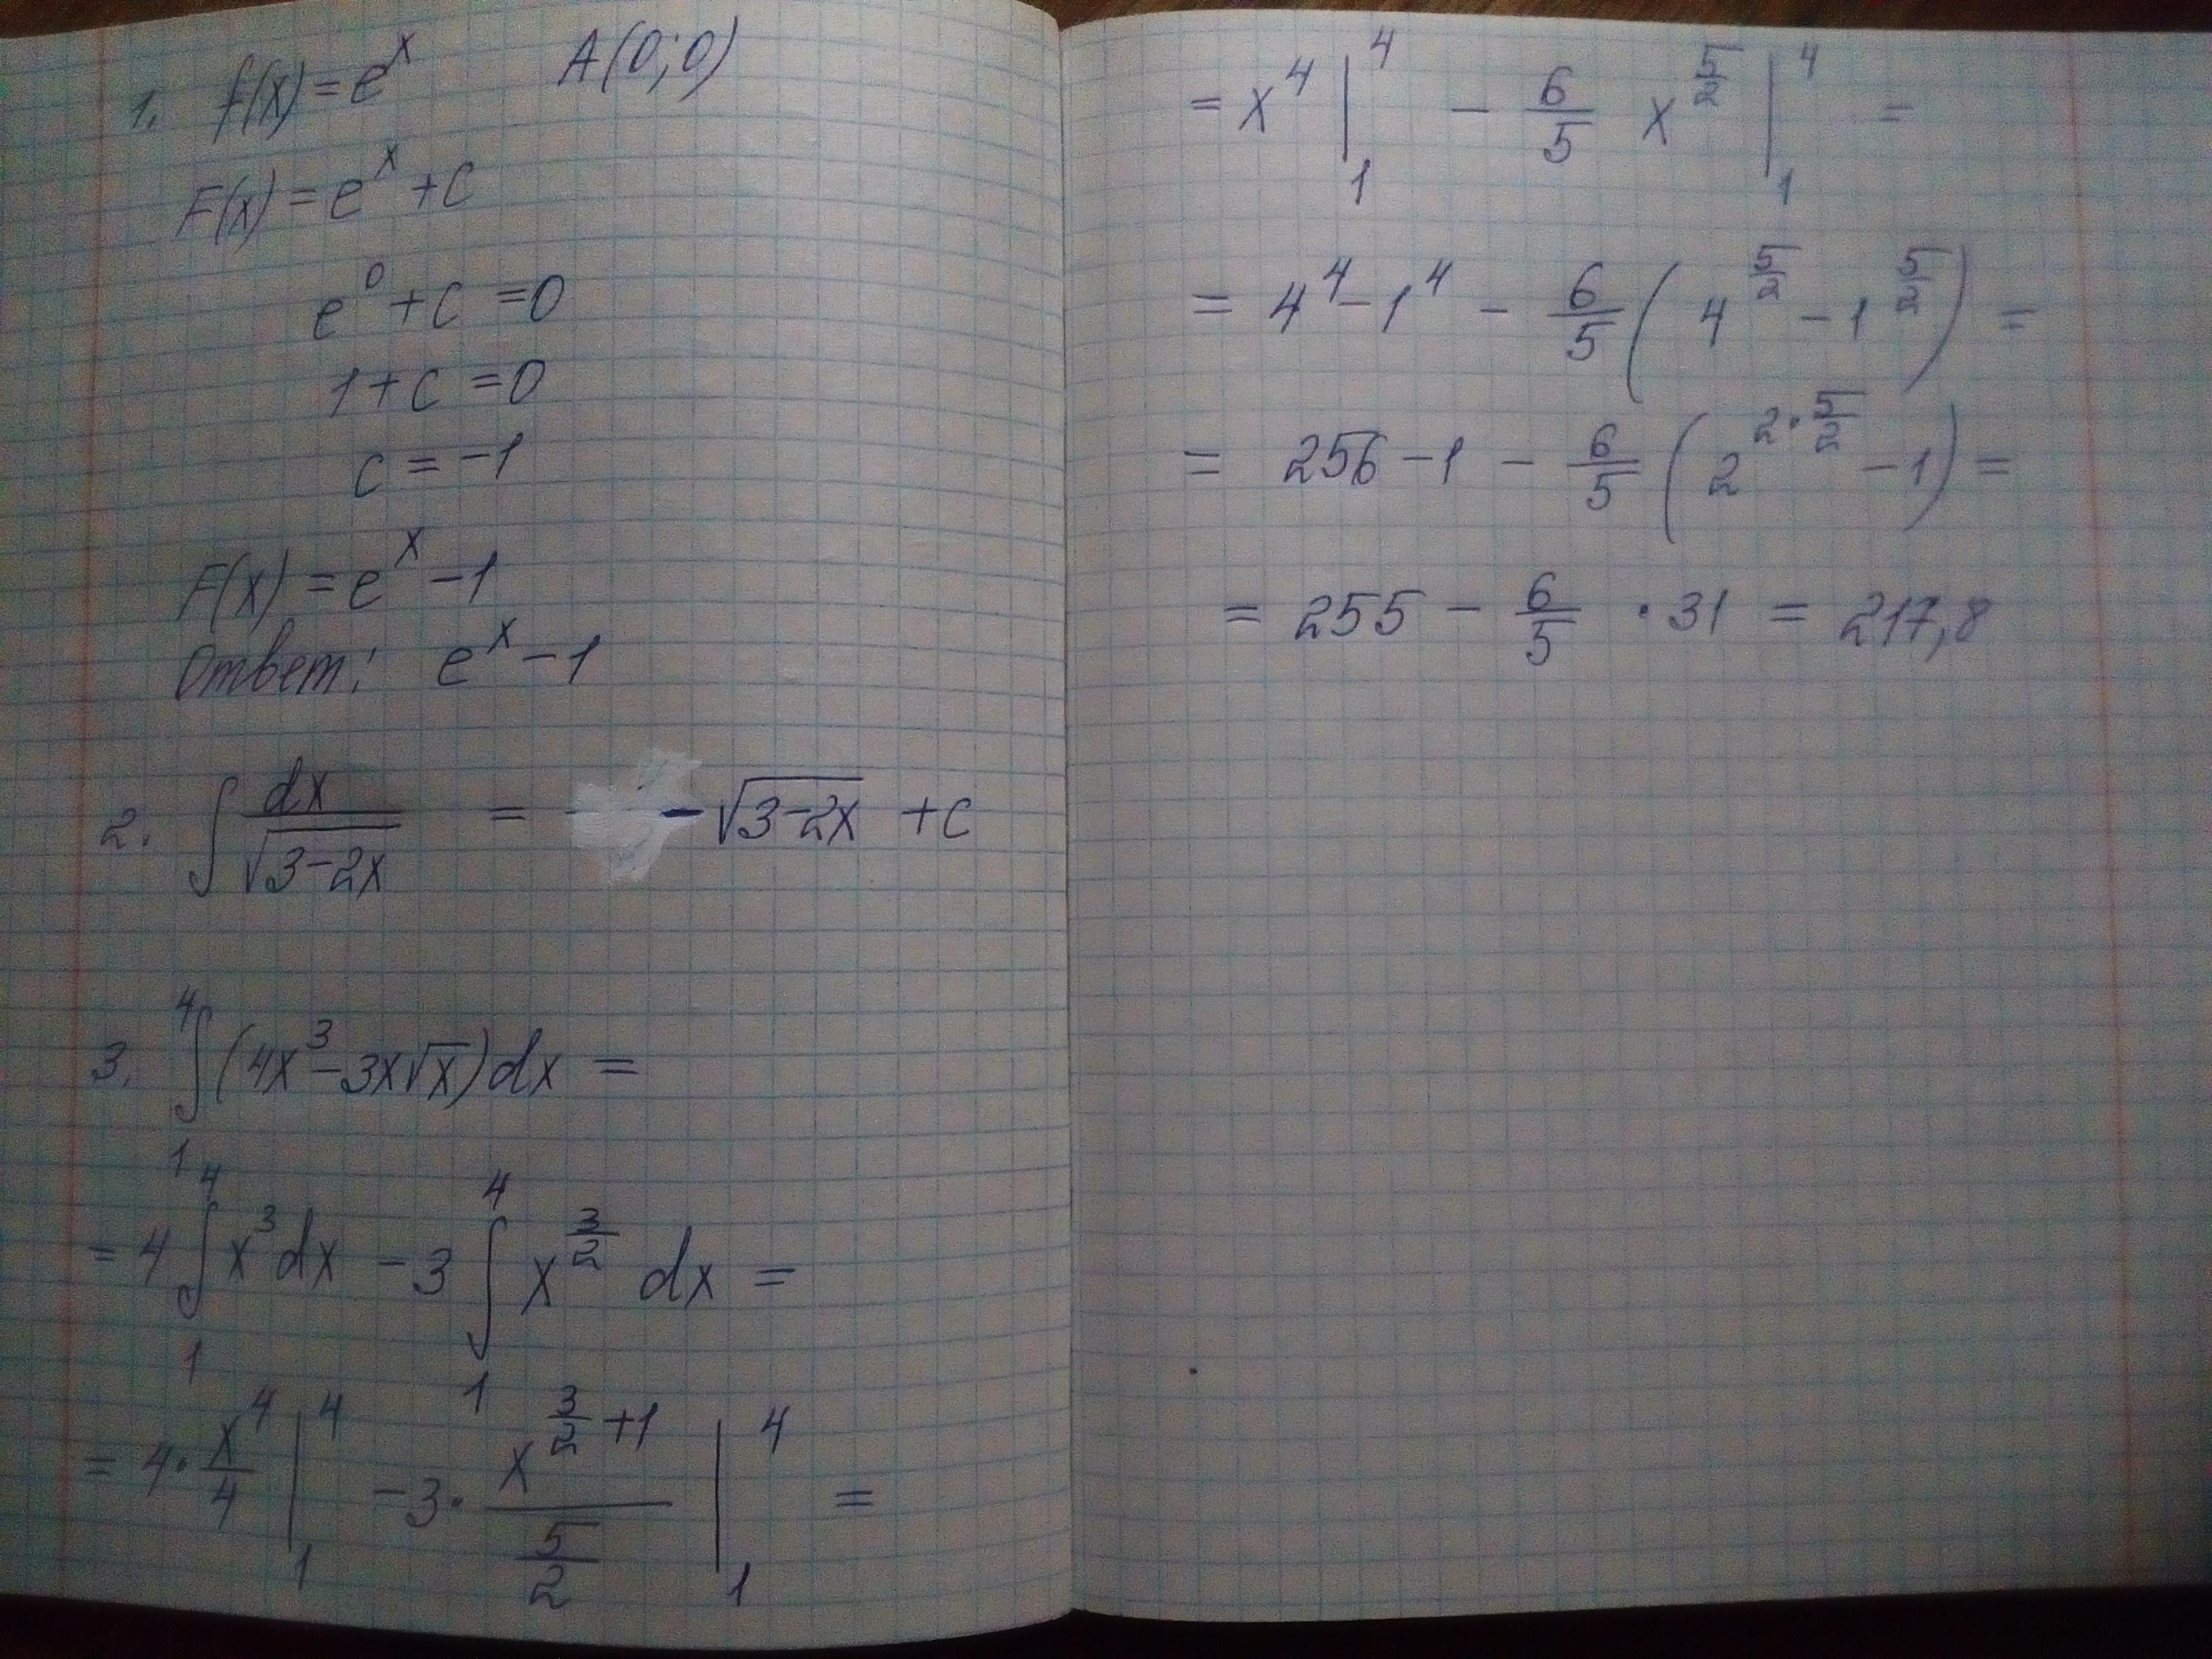 1. f(x) = eˣ A(0;0)
F(x) = eˣ + C
e⁰ + C = 0
1 + C = 0
C = -1
F(x) = eˣ - 1
Ответ: eˣ - 1
2. ∫ dx/√(3-2x) = -√(3-2x) + C
3. ∫₁⁴ (4x³ - 3x√x) dx =
= 4 ∫₁⁴ x³ dx - 3 ∫₁⁴ x^(3/2) dx =
= 4 · x⁴/4 |₁⁴ - 3 · x^(3/2 + 1)/(5/2) |₁⁴ =
= x⁴ |₁⁴ - 6/5 x^(5/2) |₁⁴ =
= 4⁴ - 1⁴ - 6/5 (4^(5/2) - 1^(5/2)) =
= 256 - 1 - 6/5 (2^(2·5/2) - 1) =
= 255 - 6/5 · 31 = 217,8